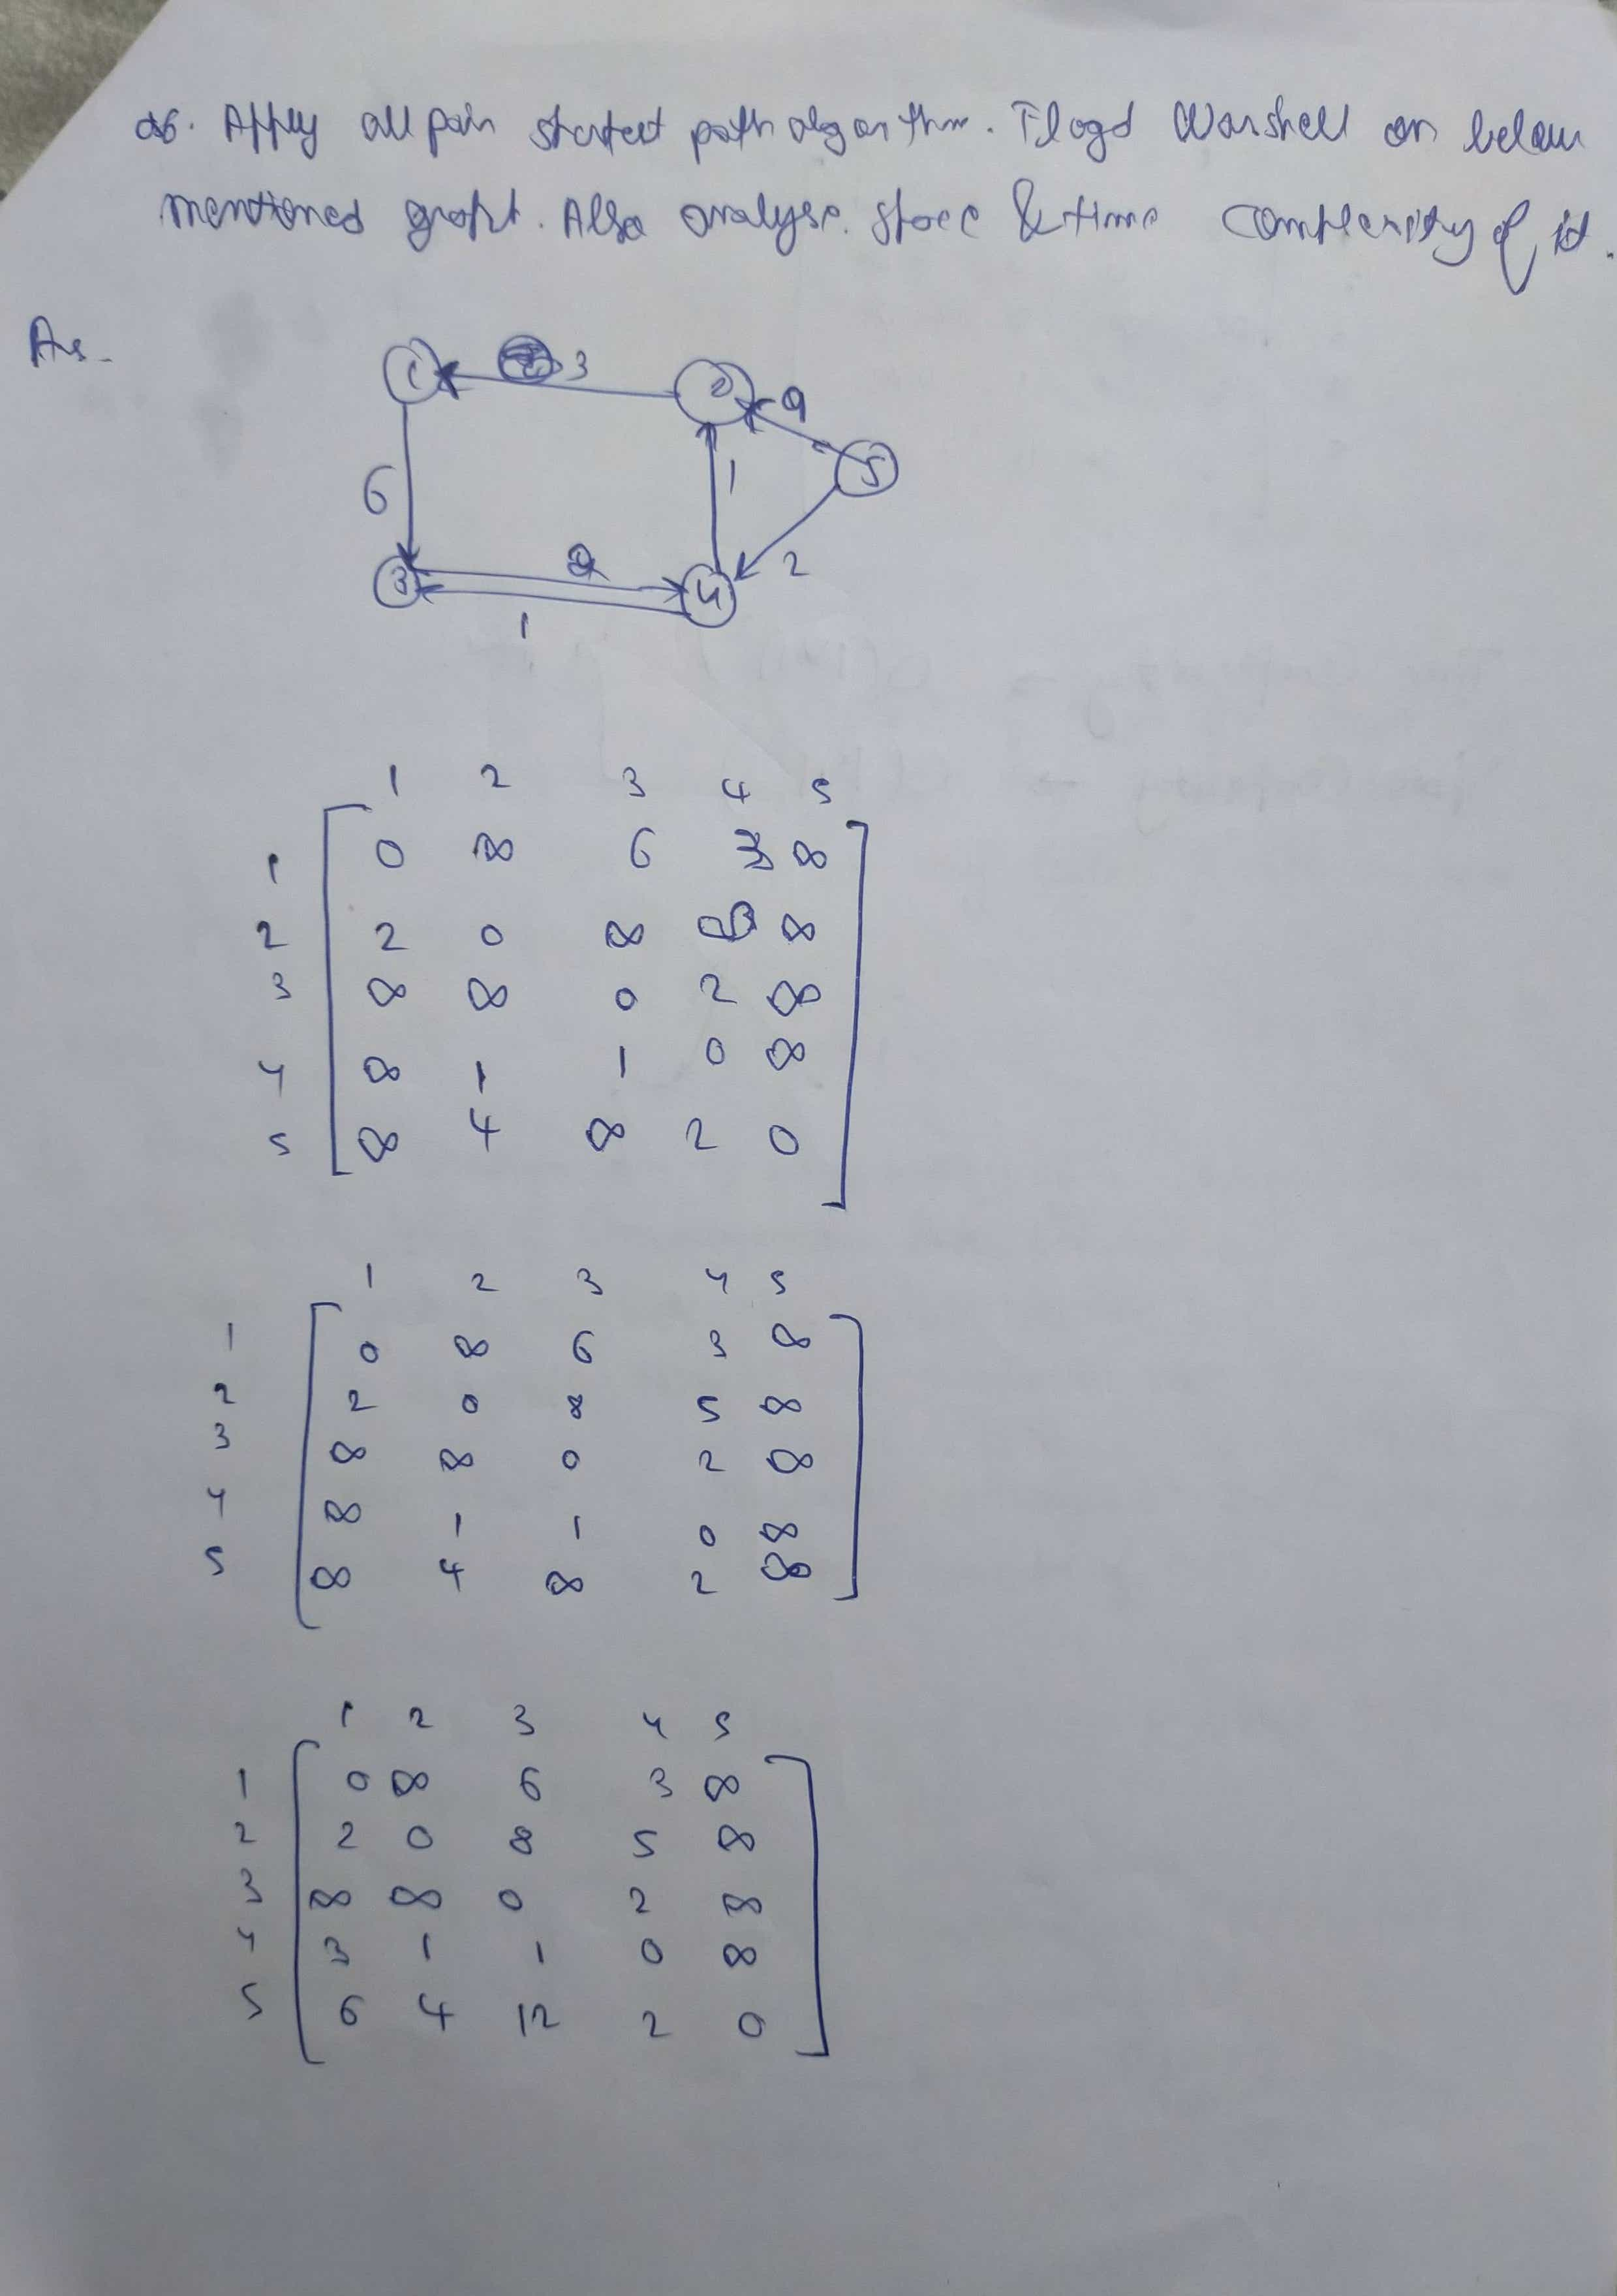 Q6. Apply all pair shortest path algorithm. Floyd Warshell on below
mentioned graph. Also analyse. space & time complexity of it.
Ans.
1 3 2 9
5
6 1
2 2
3 4
1
1 2 3 4 5
1 0 ∞ 6 3 ∞
2 2 0 ∞ ∞ ∞
3 ∞ ∞ 0 2 ∞
4 ∞ 1 1 0 ∞
5 ∞ 4 ∞ 2 0
1 2 3 4 5
1 0 ∞ 6 3 ∞
2 2 0 8 5 ∞
3 ∞ ∞ 0 2 ∞
4 ∞ 1 1 0 ∞
5 ∞ 4 ∞ 2 ∞
1 2 3 4 5
1 0 ∞ 6 3 ∞
2 2 0 8 5 ∞
3 ∞ ∞ 0 2 ∞
4 3 1 1 0 ∞
5 6 4 12 2 0